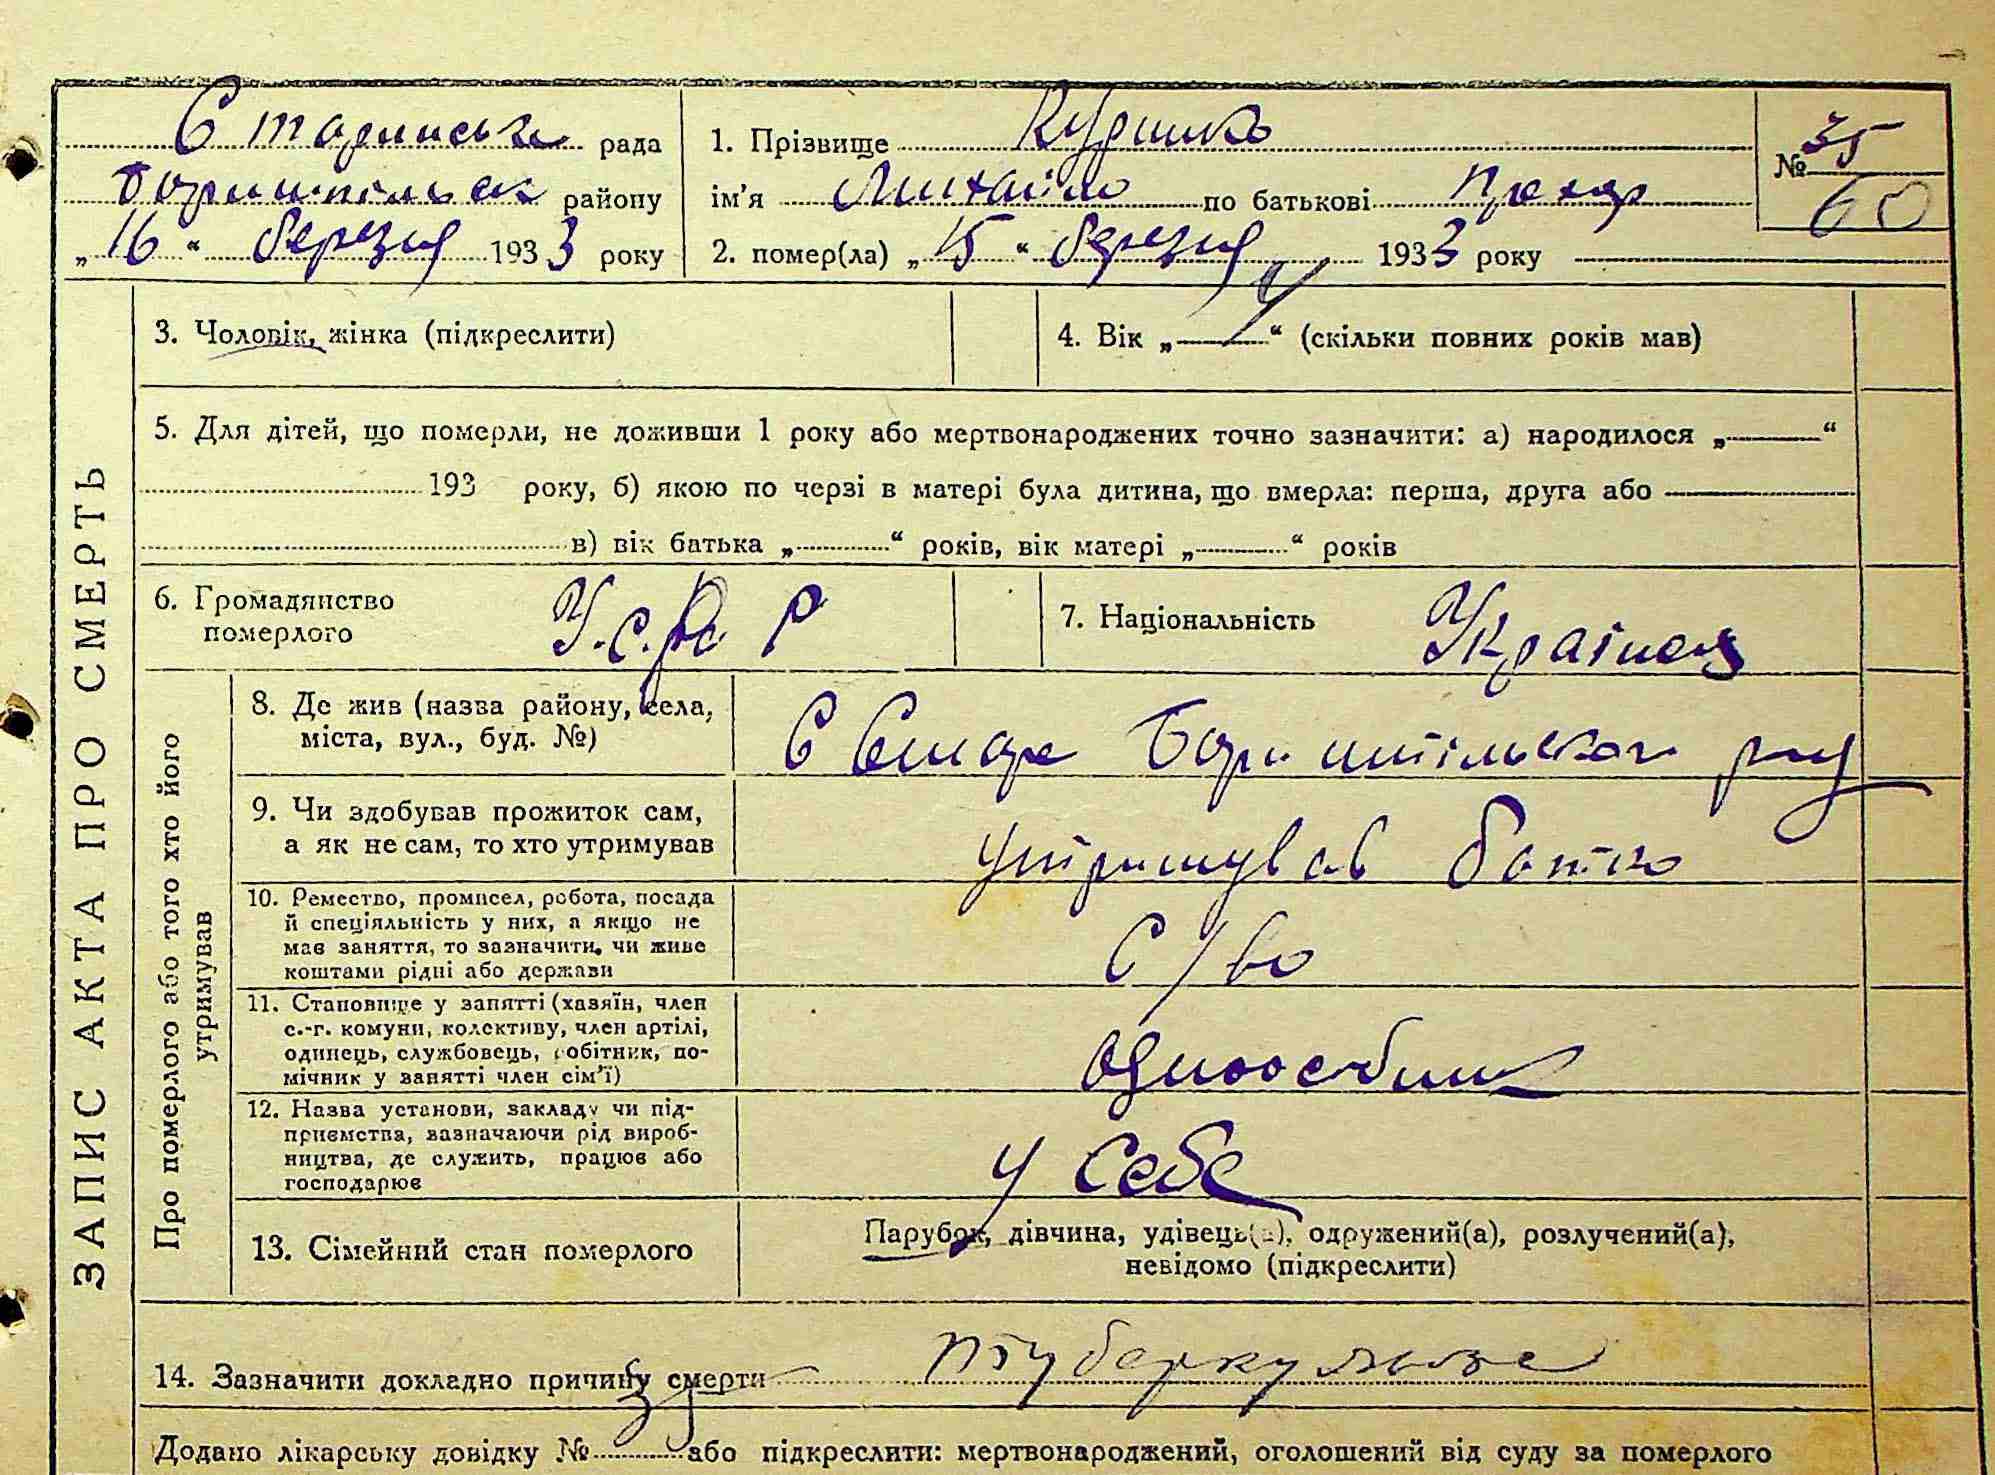 Старинська рада
Бориспільськ району
„16“ березня 1933 року
1. Прізвище Кудишко
ім'я Михайло по батькові Прохор
2. помер(ла) „15“ березня 1933 року
№ 35
60
3. Чоловік, жінка (підкреслити)
4. Вік „ “ (скільки повних років мав)
5. Для дітей, що померли, не доживши 1 року або мертвонароджених точно зазначити: а) народилося „ “
193 року, б) якою по черзі в матері була дитина, що вмерла: перша, друга або
в) вік батька „ “ років, вік матері „ “ років
6. Громадянство
померлого
У.С.Р.Р
7. Національність
Українец
ЗАПИС АКТА ПРО СМЕРТЬ
Про померлого або того хто його
утримував
8. Де жив (назва району, села,
міста, вул., буд. №)
С Стare Бориспільського рну
9. Чи здобував прожиток сам,
а як не сам, то хто утримував
утримував батько
10. Ремество, промисел, робота, посада
й спеціяльність у них, а якщо не
мав заняття, то зазначити, чи живе
коштами рідні або держави
С/во
11. Становище у занятті (хазяїн, член
с.-г. комуни, колективу, член артілі,
одинець, службовець, робітник, по-
мічник у занятті член сім'ї)
одноосібник
12. Назва установи, закладу чи під-
приємства, зазначаючи рід вироб-
ництва, де служить, працює або
господарює
у себе
13. Сімейний стан померлого
Парубок, дівчина, удівець(а), одружений(а), розлучений(а),
невідомо (підкреслити)
14. Зазначити докладно причину смерти туберкульоз
Додано лікарську довідку № або підкреслити: мертвонароджений, оголошений від суду за померлого